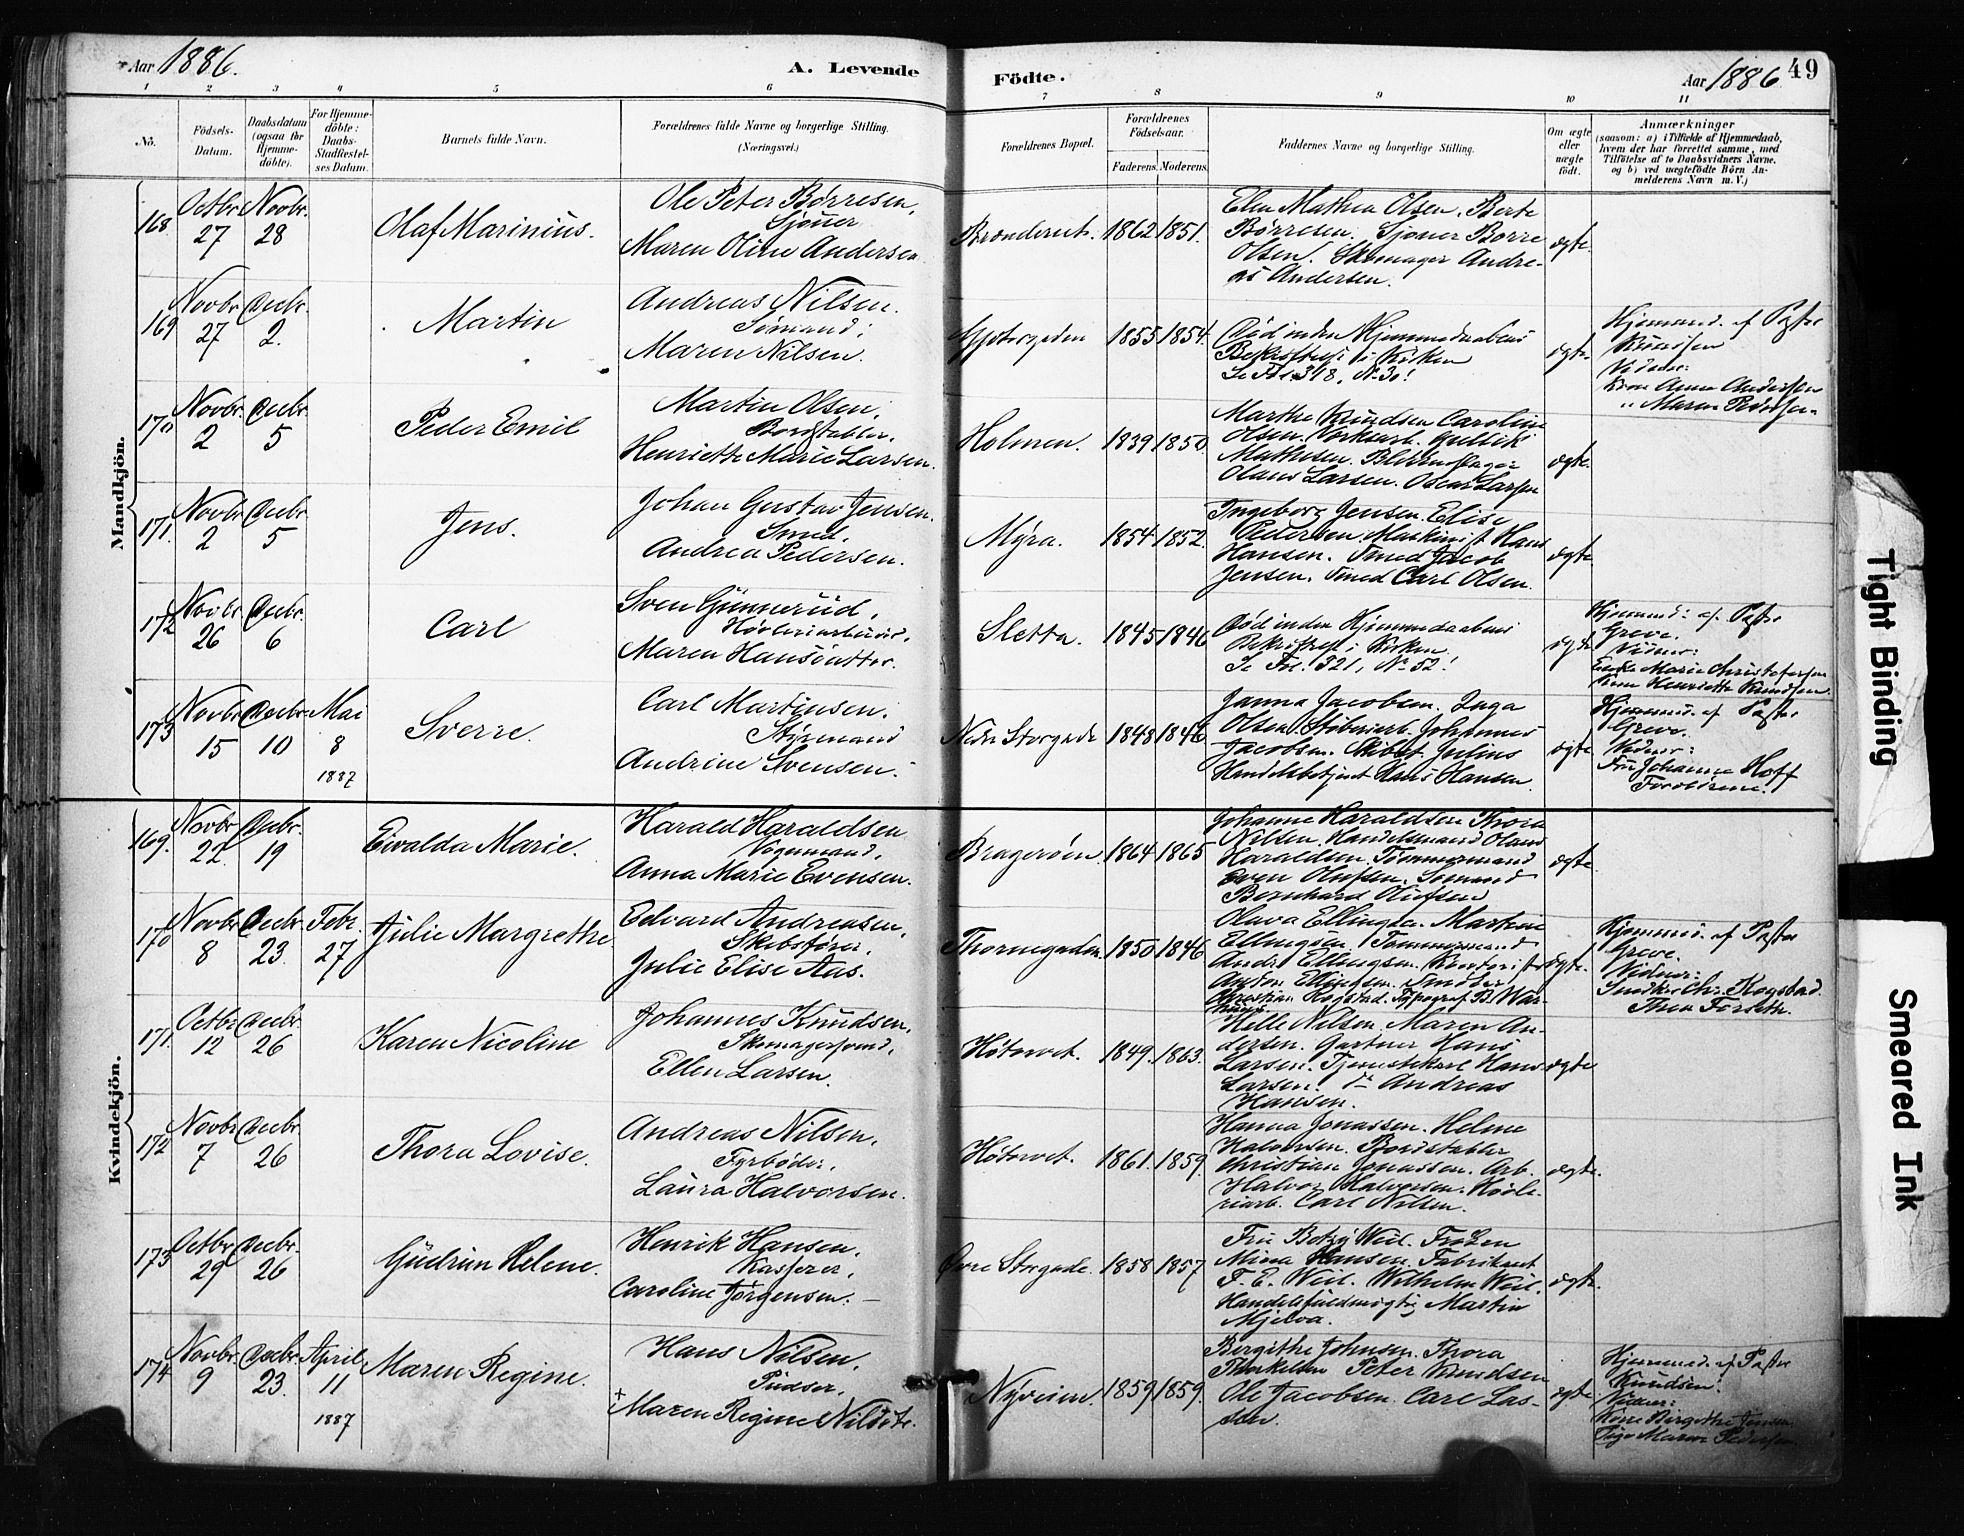 Aar 1886.
A. Levende
Födte.
Aar 1886
49
1 2 3 4 5 6 7 8 9 10 11
No.
Födsels-
Datum.
Daabsdatum
(ogsaa för
Hjemme-
döbte).
For Hjemme-
döbte:
Daabs-
Stadfæstel-
ses Datum.
Barnets fulde Navn.
Forældrenes fulde Navne og borgerlige Stilling.
(Næringsvei.)
Forældrenes Bopæl.
Forældrenes
Födselsaar.
Faderens. Moderens.
Faddernes Navne og borgerlige Stilling.
Om ægte
eller
uægte
födt.
Anmærkninger
(saasom: a) i Tilfælde af Hjemmedaab,
hvem der har forrettet samme, med
Tilföielse af to Daabsvidners Navne,
og b) ved uægtefödte Börn An-
melderens Navn m. V.)
Mandkjön.
168
Octbr. 27
Novbr. 28
Olaf Marinius.
Ole Peter Børresen,
Sjouer
Maren Oline Andersen
1862 1851.
Elen Mathea Olsen. Berte
Børresen. Sjouer Børre
Olsen. Skomager Andre-
as Andersen.
ægte.
169
Novbr 27
Decbr. 2.
Martin
Andreas Nilsen.
Sömand;
Maren Nilsen.
1855 1854.
Död inden Hjemmedaabens
Bekræftelse i Kirken
Se Fol. 318, No 30!
ægte.
Hjemmed. af Pastor
Knudsen
Vidner:
Kone Anna Andersen
" Maren
170
Novbr. 2
Decbr. 5
Peder Emil
Martin Olsen,
Bordstabler.
Henriette Marie Larsen.
Holmen. 1839 1850
Marthe Knudsen Caroline
Olsen. Gullik
Mathesen. Blikkenslager
Olaus Larsen. Oscar Larsen
ægte.
171.
Novbr 2
Decbr 5
Jens.
Johan Gustav Jensen.
Smed,
Andrea Pedersen.
Myra. 1854 1852.
Ingeborg Jensen. Elise
Pedersen. Maskinist Hans
Hansen. Smed Jacob
Jensen. Smed Carl Olsen.
ægte
172
Novbr 26
Decbr. 6
Carl
Sven Gunnerud,
Høvleriarbeider.
Maren Hansdatter.
Sletta. 1845 1846
Död inden Hjemmedaabens
Bekræftelse i Kirken
Se Fol. 321, No 52!
ægte
Hjemmed: af Pastor
Greve.
Vidner:
Enke Marie Christofersen
Kone Henriette Knudsen.
173
Novbr 15
Decbr 10
Mai 8 1887
Sverre.
Carl Martinsen.
Styrmand
Andrine Svensen.
Nedre Storgade 1848 1846
Janna Jacobsen. Inga
Olsen. Johannes
Jacobsen. Julius
Handelsbetjent Hans Hansen.
ægte
Hjemmed. af Pastor
Greve.
Vidner:
Fru Johanne Hoff
Forældrene.
Kvindekjön.
169.
Novbr 22
Decbr. 19
Eivalda Marie.
Harald Haraldsen
Vognmand.
Anna Marie Evensen.
Bragerøen 1864 1865
Johanne Haraldsen Thora
Nilsen. Handelsmand Olaus
Haraldsen. Tømmermand
Even Olufsen. Sømand
Bernhard Olufsen
ægte.
170
Novbr 8
Decbr. 23
Febr. 27
Julie Margrethe
Edvard Andreasen,
Skibsfører.
Julie Elise Aas.
Thornegaden. 1850 1846
Olava Ellingsen. Martine
Ellingsen. Tømmermand
Andr. Ellingsen. Kontorist
Anton Ellingsen. Snedker
Christian Rogstad. Typograf B. War-
ægte.
Hjemmed. af Pastor
Greve.
Vidner:
Snedker Chr. Rogstad.
Thea Forseth.
171.
Octbr 12
Decbr 26
Karen Nicoline
Johannes Knudsen,
Skomagersvend,
Ellen Larsen.
Høtorvet. 1849. 1863.
Helle Nilsen. Maren An-
dersen. Gartner Hans
Larsen. Tjenestekarl Hans
Larsen. do Andreas
Hansen.
ægte
172
Novbr 7
Decbr. 26
Thora Lovise.
Andreas Nilsen,
Fyrbøder,
Laura Halvorsen.
Høtorvet. 1861. 1859.
Hanna Jonassen. Helene
Halvorsen. Bordstabler
Christian Jonassen. Arb.
Halvor Halvorsen. Høvle-
riarb. Carl Nilsen.
ægte.
173
Octbr 29
Decbr. 26
Gudrun Helene.
Henrik Hansen,
Kasserer,
Caroline Jørgensen.
Øvre Storgade. 1858 1857
Fru Betzy Weil. Frøken
Mina Hansen. Fabrikant
F. E. Weil. Wilhelm Weil.
Handelsfuldmægtig Martin
Mjelva.
ægte.
174
Novbr. 9
Decbr. 23.
April 11 1887
Maren Regine.
Hans Nilsen.
Pudser,
+ Maren Regine Nilsdtr.
Nyveien. 1859 1859.
Birgithe Johnsen. Thora
Thorkelsen Peter Knudsen
Ole Jacobsen. Carl Las-
sen.
ægte
Hjemmed. af Pastor
Knudsen.
Vidner:
Kone Birgithe Jensen
Pige Maren Pedersen
Tight Binding
Smeared Ink